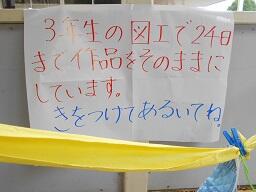 3年生の図工で24日
まで作品をそのままに
しています。
きをつけてあるいてね。